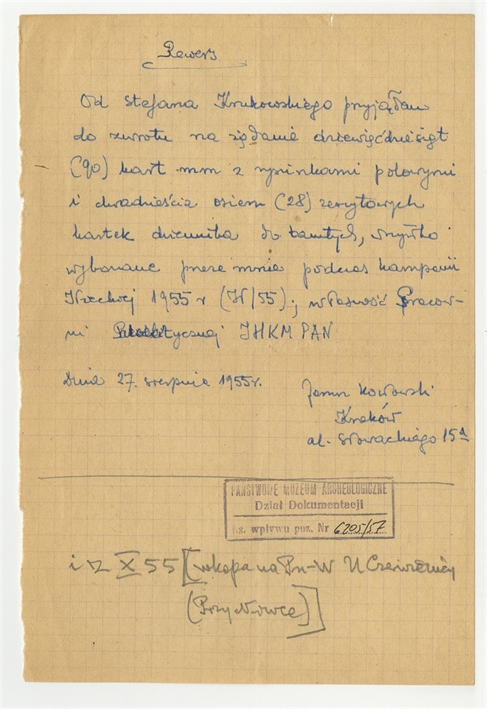 Rewers
Od Stefana Krukowskiego przyjąłem
do zwrotu na żądanie dziewięćdziesiąt
(90) kart mm z rysunkami polowymi
i dwadzieścia osiem (28) zeszytowych
kartek dziennika do tamtych, wszystko
wykonane przeze mnie podczas kampanii
trzeciej 1955 r (W/55); własność Pracow-
ni tycznej IHKM PAN
Dnia 27. sierpnia 1955r.
Janusz Kozłowski
Kraków
al. Słowackiego 15ᴬ
PAŃSTWOWE MUZEUM ARCHEOLOGICZNE
Dział Dokumentacji
Ks. wpływu poz. Nr 6205/57
i z X 55 [wkopa na Pn-W